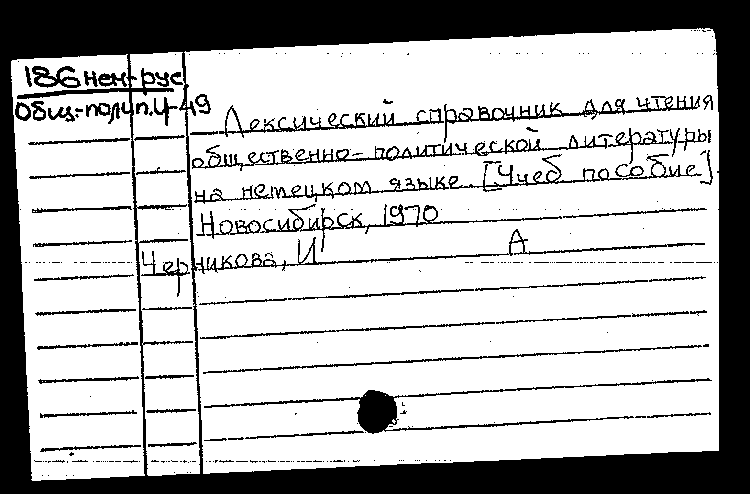 186 нем-рус
Общ-полит. Ч-49
Лексический справочник для чтения
общественно-политической литературы
на немецком языке. [Учеб пособие].
Новосибирск, 1970
Черникова, И А